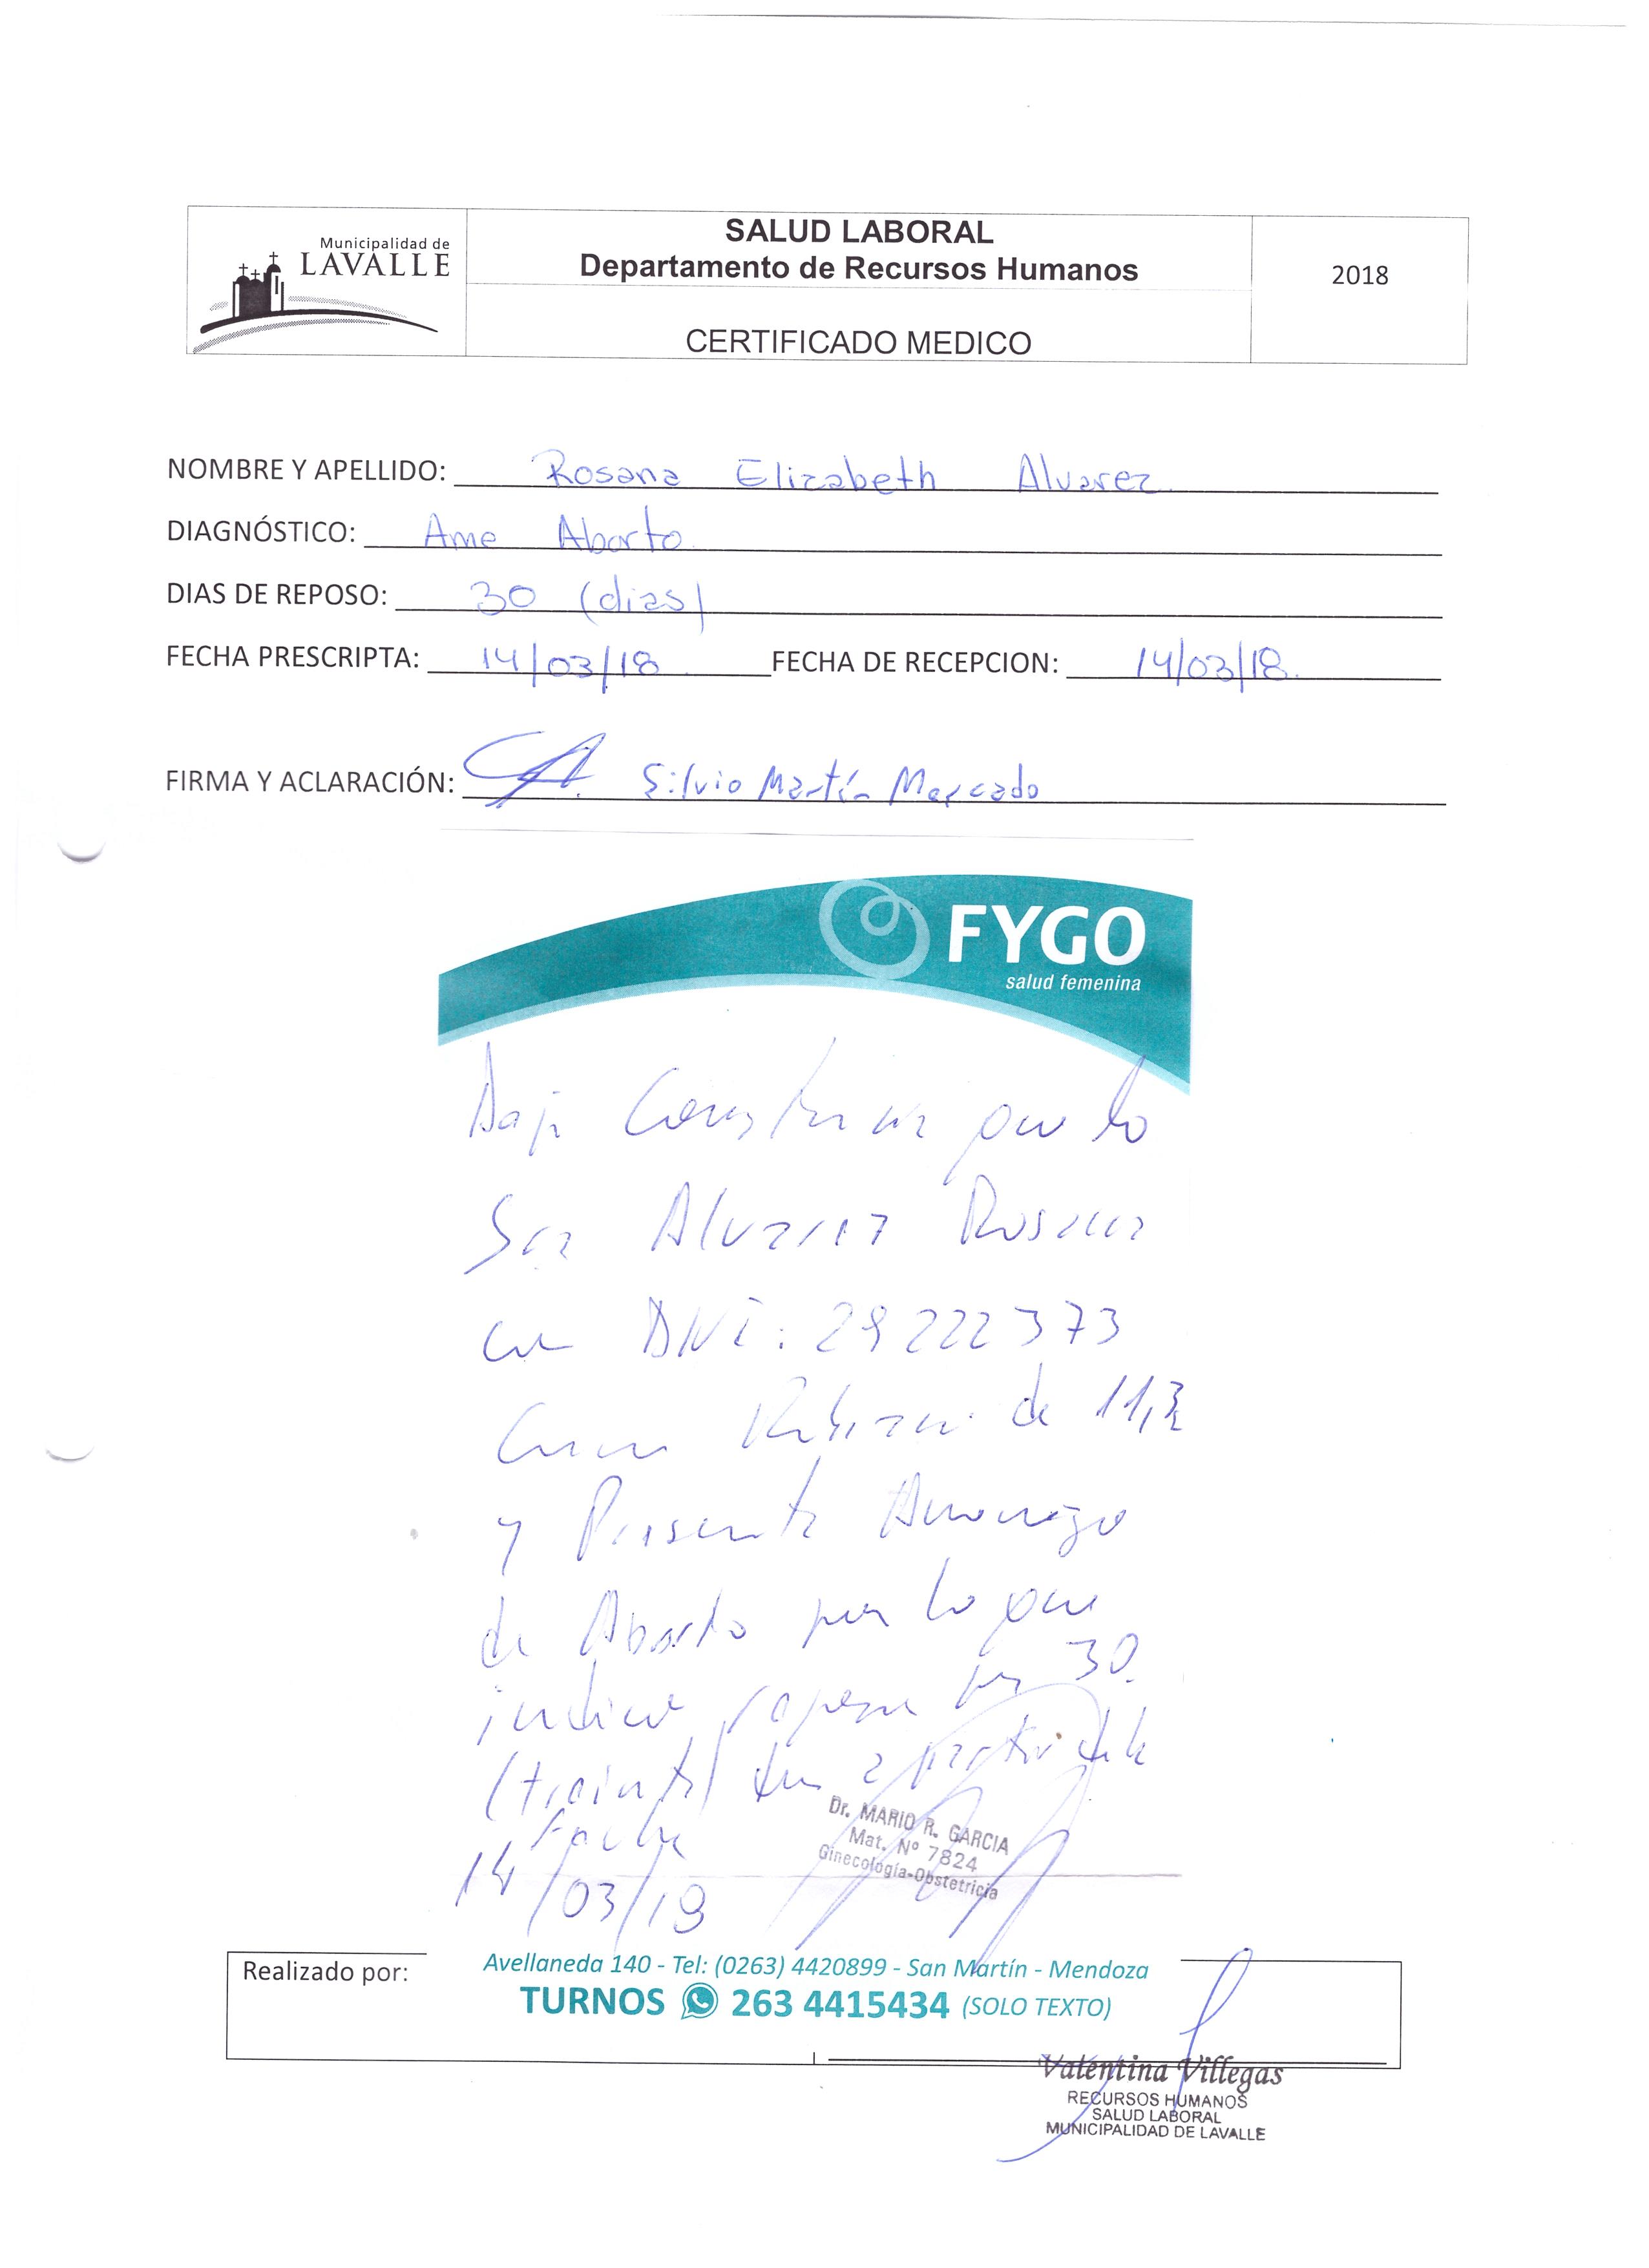 Municipalidad de
LAVALLE
SALUD LABORAL
Departamento de Recursos Humanos
CERTIFICADO MEDICO
2018
NOMBRE Y APELLIDO: Rosana Elizabeth Alvarez
DIAGNÓSTICO: Ame Aborto
DIAS DE REPOSO: 30 (dias)
FECHA PRESCRIPTA: 14/03/18 FECHA DE RECEPCION: 14/03/18
FIRMA Y ACLARACIÓN: Silvio Martín Mercado
FYGO
salud femenina
Dejo Constancia que la
Sra Alvarez Rosana
con DNI: 29222373
Cursa de 11,3
y Presenta Amenaza
de Aborto por lo que
indico reposo por 30
(treinta) dias a partir de la
Fecha
14/03/18
Dr. MARIO R. GARCIA
Mat. Nº 7824
Ginecología-Obstetricia
Realizado por:
Avellaneda 140 - Tel: (0263) 4420899 - San Martín - Mendoza
TURNOS 263 4415434 (SOLO TEXTO)
Valentina Villegas
RECURSOS HUMANOS
SALUD LABORAL
MUNICIPALIDAD DE LAVALLE